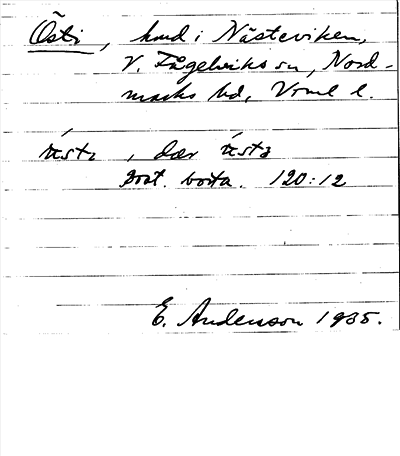 Östi, hmd i Nästeviken,
V. Fågelviks sn, Nord-
marks hd, Vrml l.
ǘstɩ, dær ǘstɩ
prat. borta. 120:12
E. Andersson 1935.